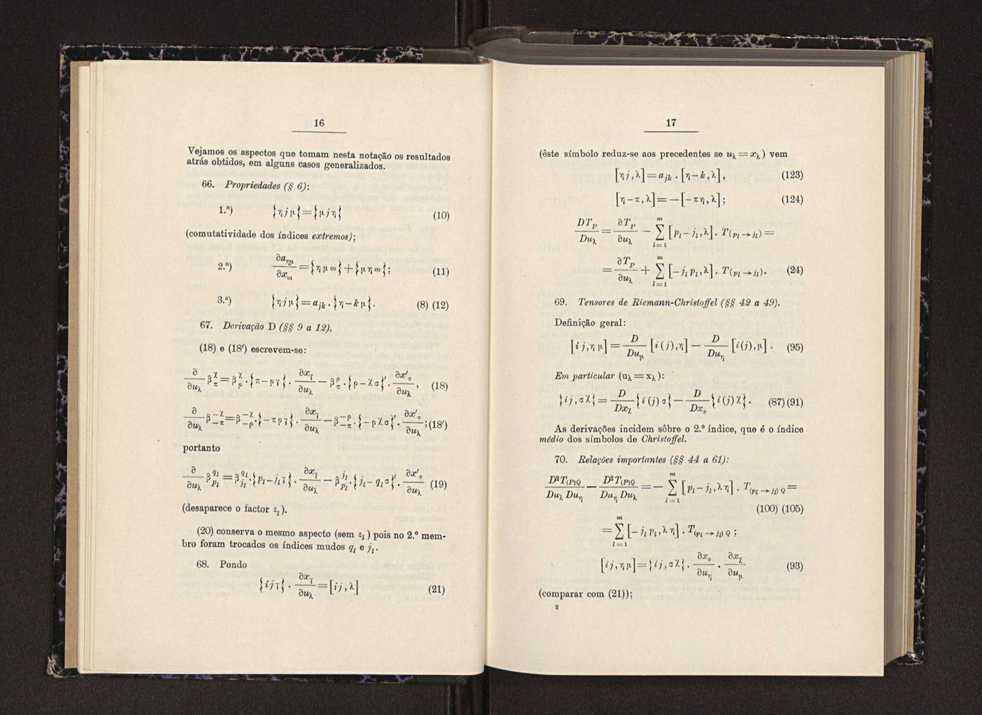 16
Vejamos os aspectos que tomam nesta notação os resultados
atrás obtidos, em alguns casos generalizados.
66. Propriedades (§ 6):
1.ª) {η j μ} = {μ j η} (10)
(comutatividade dos índices extremos);
2.ª) (11)
3.ª) {η j μ} = a_jk . {η − k μ}. (8) (12)
67. Derivação D (§§ 9 a 12).
(18) e (18′) escrevem-se:
(18)
(18′)
portanto
(19)
(desaparece o factor ε_l).
(20) conserva o mesmo aspecto (sem ε_l) pois no 2.º mem-
bro foram trocados os índices mudos q_l e j_l.
68. Pondo
{i j ī} . ∂x_ī / ∂u_λ = [i j , λ] (21)
17
(êste símbolo reduz-se aos precedentes se u_λ = x_λ) vem
[η j , λ] = a_jk . [η − k , λ], (123)
[η − π , λ] = − [− π η , λ]; (124)
DT_p / Du_λ = ∂T_p / ∂u_λ − Σ_{l=1}^{m} [p_l − j_l , λ] . T_(p_l → j_l) =
= ∂T_p / ∂u_λ + Σ_{l=1}^{m} [− j_l p_l , λ] . T_(p_l → j_l). (24)
69. Tensores de Riemann-Christoffel (§§ 42 a 49).
Definição geral:
[i j , η μ] = D / Du_μ [i (j) , η] − D / Du_η [i (j) , μ] . (95)
Em particular (u_λ = x_λ):
{i j , σ χ} = D / Dx_χ {i (j) σ} − D / Dx_σ {i (j) χ}. (87) (91)
As derivações incidem sôbre o 2.º índice, que é o índice
médio dos símbolos de Christoffel.
70. Relações importantes (§§ 44 a 61):
D²T_(P)Q / Du_λ Du_η − D²T_(P)Q / Du_η Du_λ = − Σ_{l=1}^{m} [p_l − j_l , λ η] . T_(p_l → j_l) Q =
(100) (105)
= Σ_{l=1}^{m} [− j_l p_l , λ η] . T_(p_l → j_l) Q ;
[i j , η μ] = {i j , σ χ} . ∂x_σ / ∂u_η . ∂x_χ / ∂u_μ (93)
(comparar com (21));
2